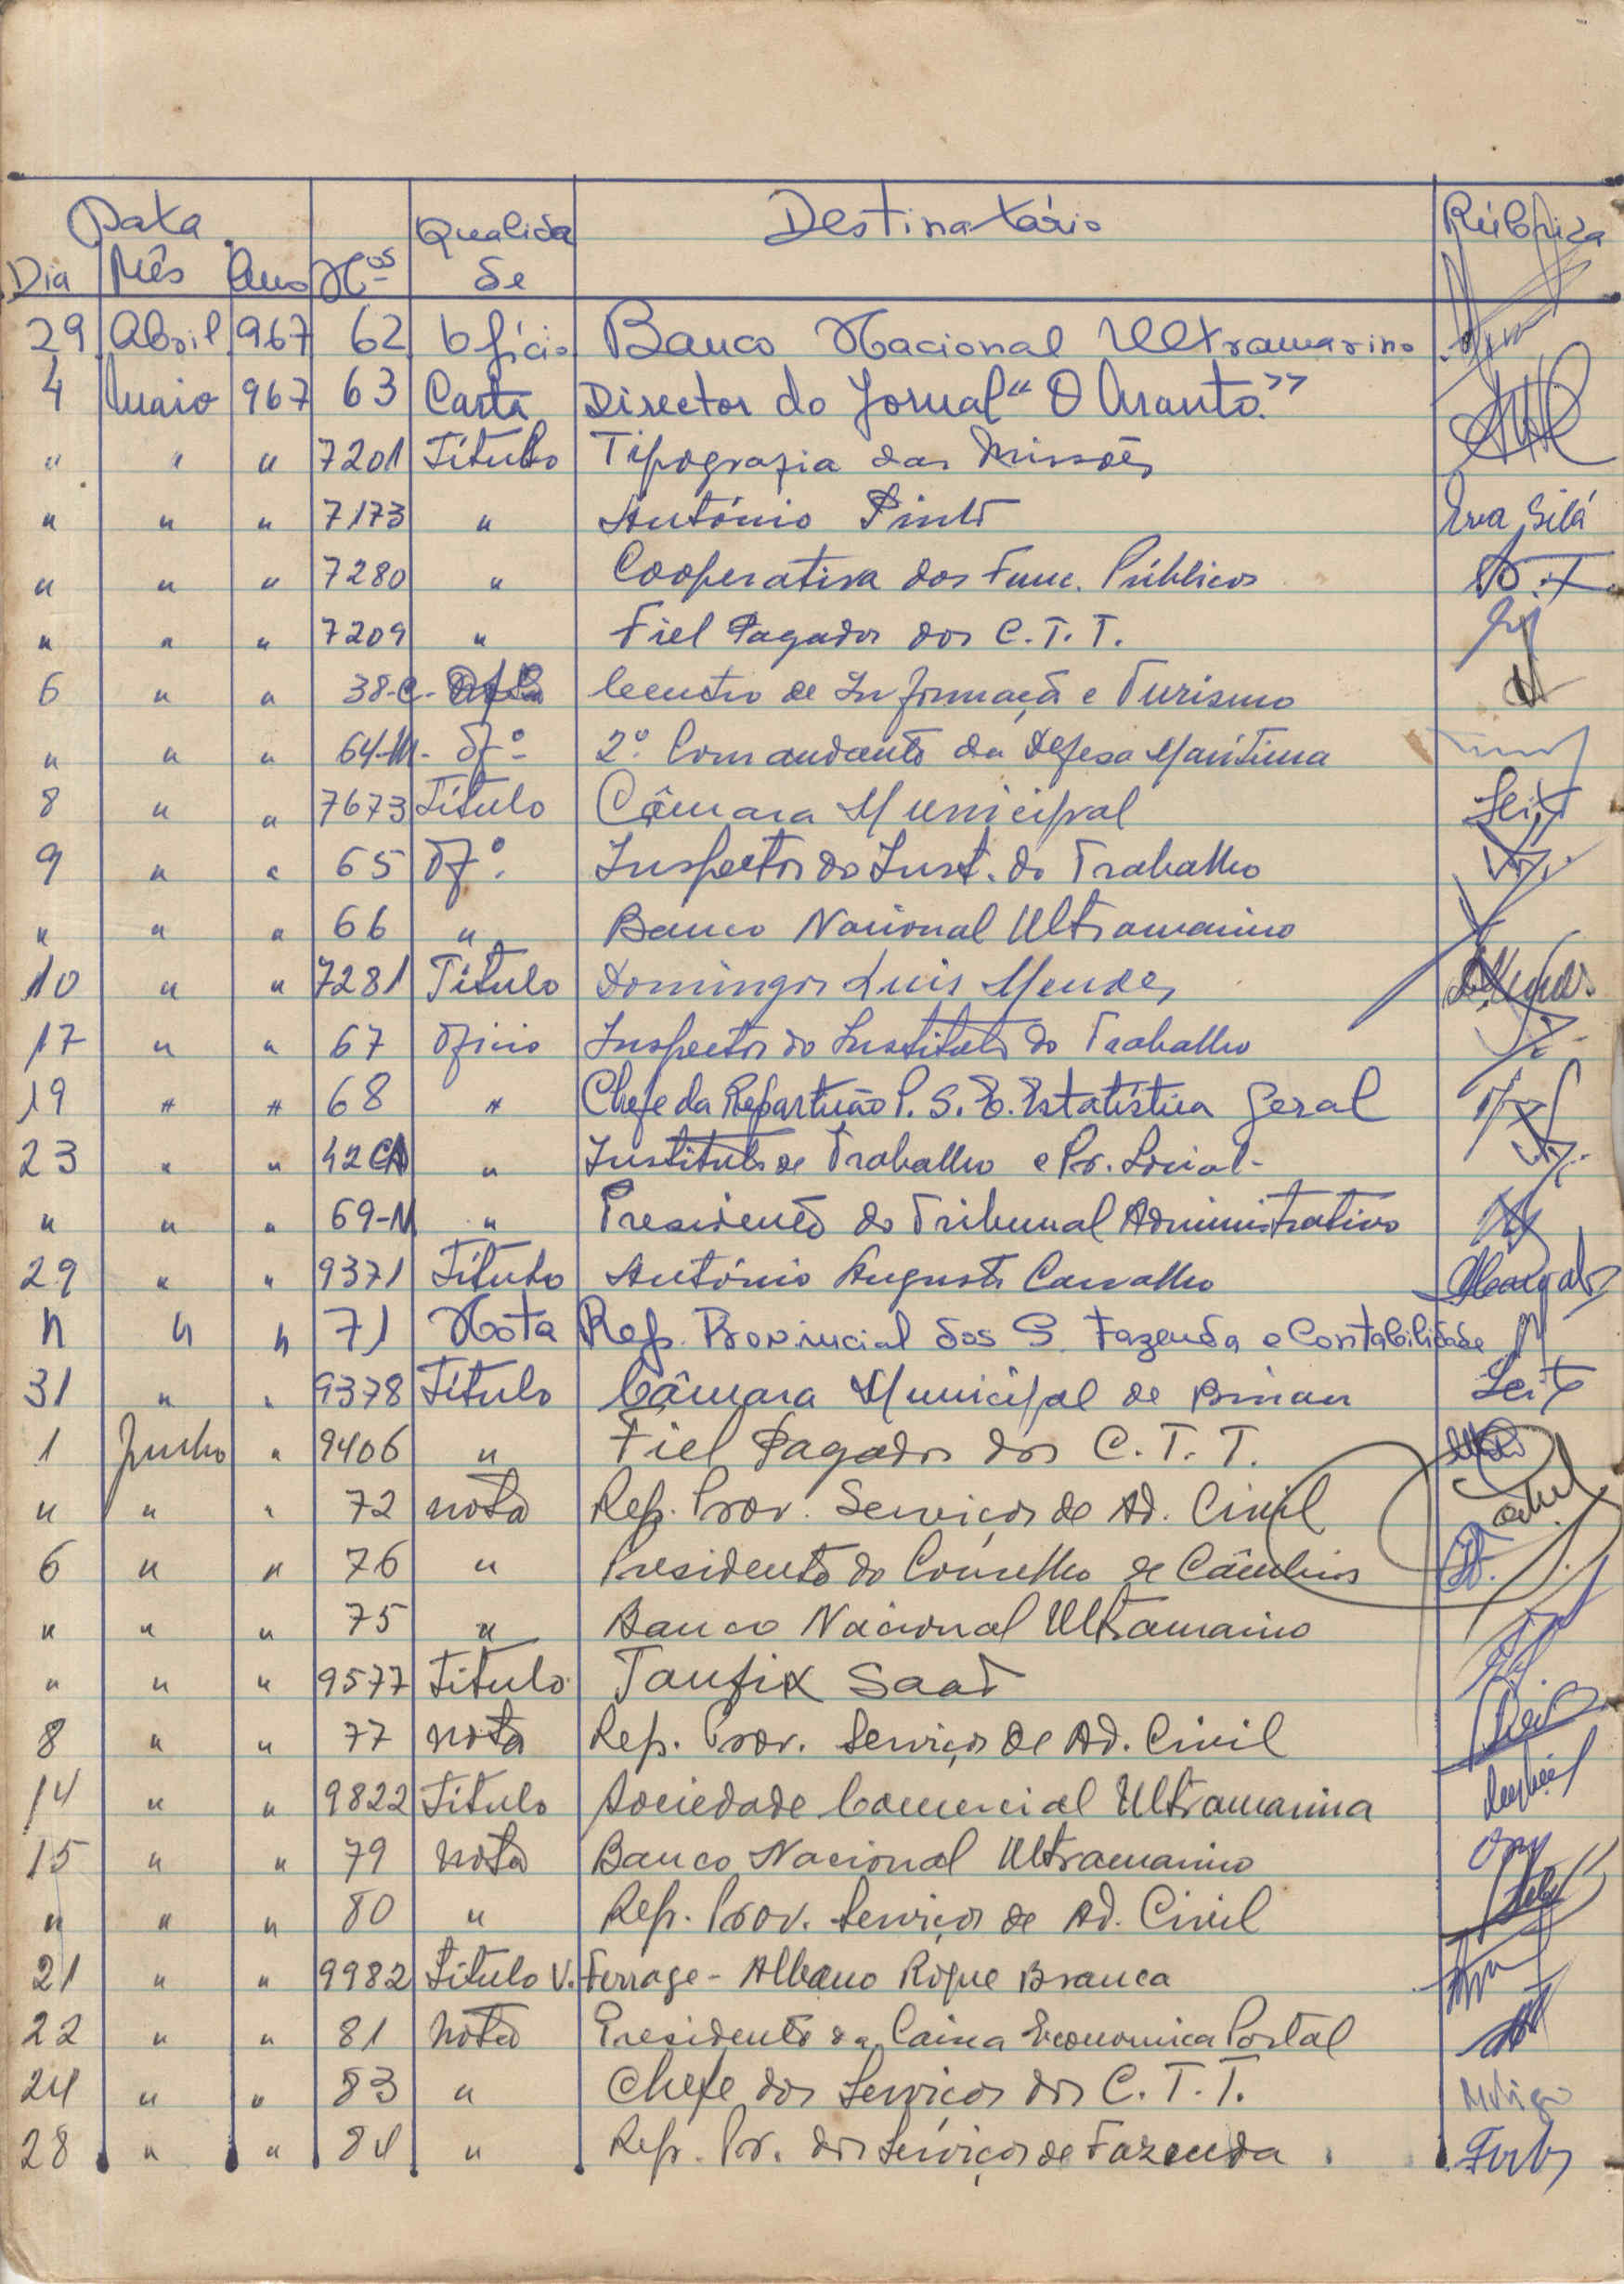 Data Qualida Destinatário Rúbrica
Dia Mês Ano Nos de
29 Abril 967 62 Ofício Banco Nacional Ultramarino
4 Maio 967 63 Carta Director do Jornal "O Arauto"
" " " 7201 Título Tipografia das Missões
" " " 7173 " António Pinto
" " " 7280 " Cooperativa dos Func. Públicos
" " " 7209 " Fiel Pagador dos C.T.T.
6 " " 38-C- Centro de Informaçã e Turismo
" " " 64-M- Ofº 2º Comandante da Defesa Marítima
8 " " 7673 Título Câmara Municipal Leite
9 " " 65 Ofº. Inspector do Inst. do Trabalho
" " " 66 " Banco Nacional Ultramarino
10 " " 7281 Título Domingos Luis Mendes
17 " " 67 Ofício Inspector do Instituto do Trabalho
19 " " 68 " Chefe da Repartição P. S. E. Estatística Geral
23 " " 42 CA " Instituto de Trabalho e Pr. Social-
" " " 69-M " Presidente do Tribunal Administrativo
29 " " 9371 Título António Augusto Carvalho
" " " 71 Nota Rep. Provincial dos S. Fazenda e Contabilidade
31 " " 9378 Título Câmara Municipal de Bissau Leite
1 Junho " 9406 " Fiel Pagador dos C.T.T.
" " " 72 nota Rep. Prov. Serviços de Ad. Civil
6 " " 76 " Presidente do Conselho de Câmbios
" " " 75 " Banco Nacional Ultramarino
" " " 9577 Título Taufik Saad
8 " " 77 nota Rep. Prov. Serviços de Ad. Civil
14 " " 9822 Título Sociedade Comercial Ultramarina
15 " " 79 nota Banco Nacional Ultramarino
" " " 80 " Rep. Prov. Serviços de Ad. Civil
21 " " 9982 Título V. Ferrage - Albano Roque Branca
22 " " 81 Nota Presidente da Caixa Economica Postal
24 " " 83 " Chefe dos Serviços dos C.T.T.
28 " " 84 " Rep. Pr. dos Serviços de Fazenda